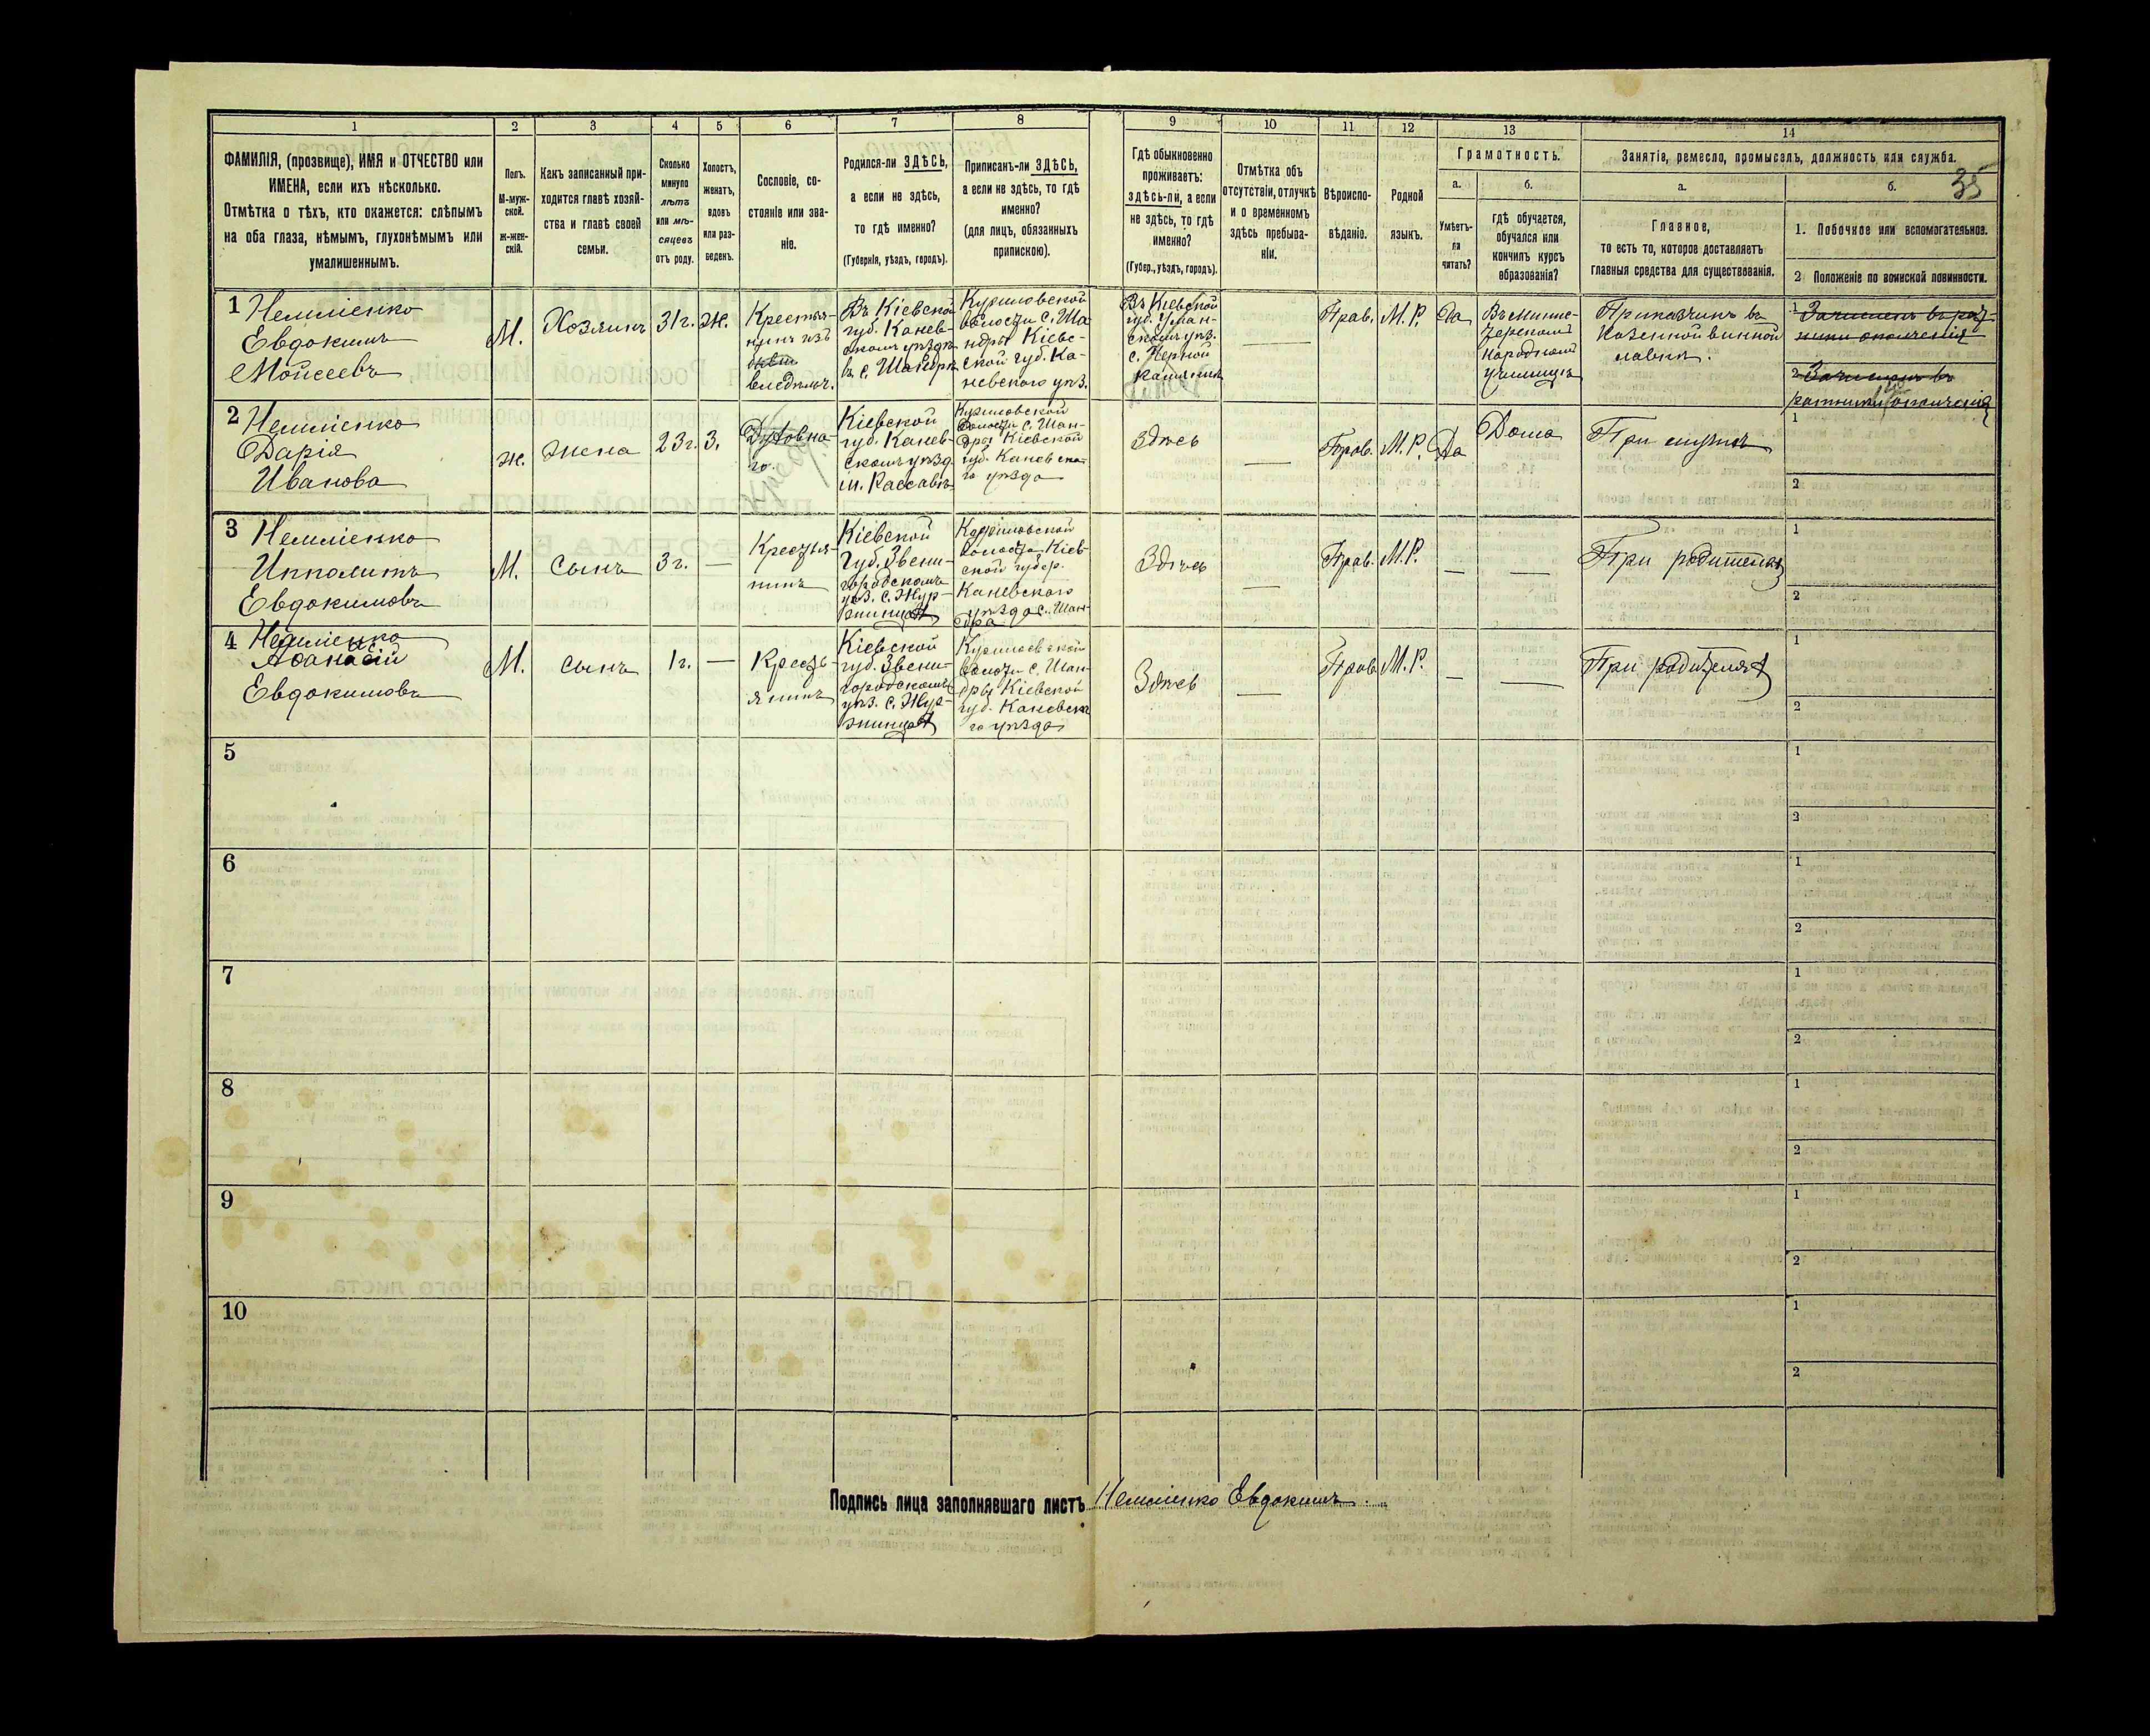 1
2
3
4
5
6
7
8
9
10
11
12
13
14
ФАМИЛІЯ, (прозвище), ИМЯ и ОТЧЕСТВО или
ИМЕНА, если ихъ нѣсколько.
Отмѣтка о тѣхъ, кто окажется: слѣпымъ
на оба глаза, нѣмымъ, глухонѣмымъ или
умалишеннымъ.
Полъ.
М-муж-
ской.
Ж-жен-
скій.
Какъ записанный при-
ходится главѣ хозяй-
ства и главѣ своей
семьи.
Сколько
минуло
лѣтъ
или мѣ-
сяцевъ
отъ роду.
Холостъ,
женатъ,
вдовъ
или раз-
веденъ.
Сословіе, со-
стояніе или зва-
ніе.
Родился-ли ЗДѢСЬ,
а если не здѣсь,
то гдѣ именно?
(Губернія, уѣздъ, городъ).
Приписанъ-ли ЗДѢСЬ,
а если не здѣсь, то гдѣ
именно?
(для лицъ, обязанныхъ
припискою).
Гдѣ обыкновенно
проживаетъ:
ЗДѢСЬ-ЛИ, а если
не здѣсь, то гдѣ
именно?
(Губер., уѣздъ, городъ).
Отмѣтка объ
отсутствіи, отлучкѣ
и о временномъ
здѣсь пребыва-
ніи.
Вѣроиспо-
вѣданіе.
Родной
языкъ.
Грамотность.
а.
Умѣетъ-
ли
читать?
б.
гдѣ обучается,
обучался или
кончилъ курсъ
образованія?
Занятіе, ремесло, промыселъ, должность или служба.
35
а.
Главное,
то есть то, которое доставляетъ
главныя средства для существованія.
б.
1. Побочное или вспомогательное.
2 Положеніе по воинской повинности.
1
Евдокимъ
Моисеевъ
М.
Хозяинъ
31 г.
ж.
Крестья-
нинъ изъ
бывш
владѣльч.
Въ Кіевской
губ. Канев-
скомъ уѣздѣ
волости с. Ша
ндры Кіевс-
кой губ. Ка-
невского уѣз.
Въ Кіевской
губ. Уман-
скомъ уѣз.
с. Черной
Каменкѣ
Прав.
М. Р.
Да
Въ минис-
терскомъ
народномъ
училищѣ
Приказчикъ въ
Казенной винной
лавкѣ.
1
2
2
Дарія
Иванова
ж.
жена
23 г.
З.
Духовна-
го.
Кіевской
губ. Канев-
скомъ уѣзд.
волости с. Шан-
дра Кіевской
губ. Каневска-
го уѣзда
Здѣсь
Прав.
М. Р.
Да
Дома
При мужѣ
1
2
3
Ипполитъ
Евдокимовъ
М.
Сынъ
3 г.
Крестья-
нинъ
Кіевской
губ. Звени-
городскомъ
уѣз. с. Жур-
жинцахъ
волости Кіев-
ской губер.
Каневского
уѣзда с. Шан-
дра
Здѣсь
Прав.
М. Р.
При родителяхъ
1
2
4
Аѳанасій
Евдокимовъ
М.
сынъ
1 г.
Кресть-
янинъ
Кіевской
губ. Звени-
городскомъ
уѣз. с. Жур-
жинцахъ
волости с. Шан-
дры Кіевской
губ. Каневска
го уѣзда
Здѣсь
Прав.
М. Р.
При родителяхъ
1
2
5
1
2
6
1
2
7
1
2
8
1
2
9
1
2
10
1
2
Подпись лица заполнявшаго листъ
Евдокимъ